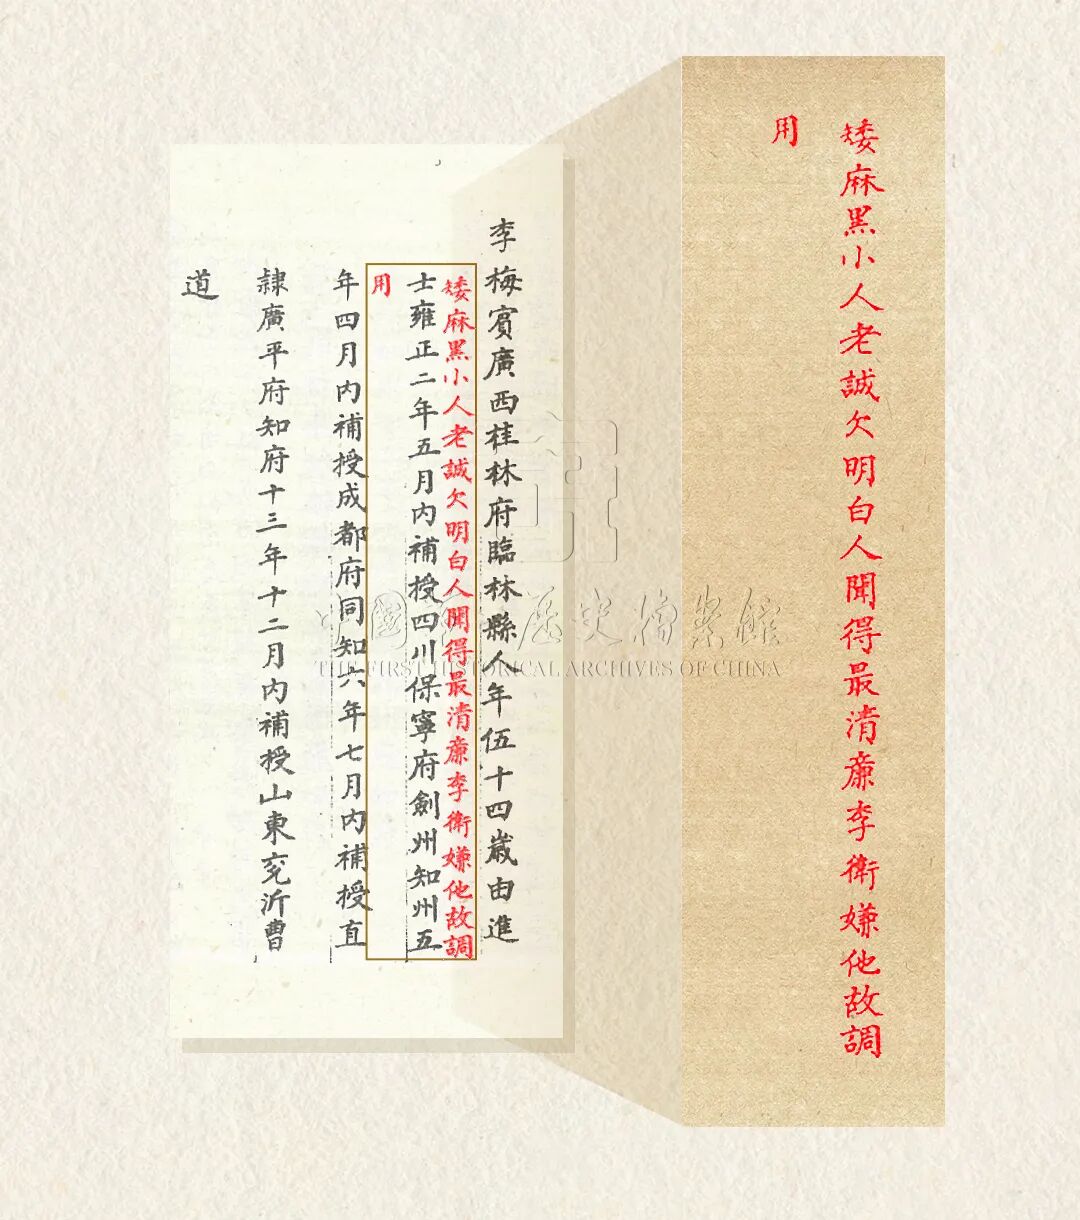 矮麻黑小人老誠欠明白人聞得最清亷李衛嫌他故調
用
李梅賓廣西桂林府臨林縣人年伍十四歲由進
矮麻黑小人老誠欠明白人聞得最清亷李衛嫌他故調
士雍正二年五月內補授四川保寧府劍州知州五
用
年四月內補授成都府同知六年七月內補授直
隸廣平府知府十三年十二月內補授山東兗沂曹
道
中國第一歷史檔案館
THE FIRST HISTORICAL ARCHIVES OF CHINA